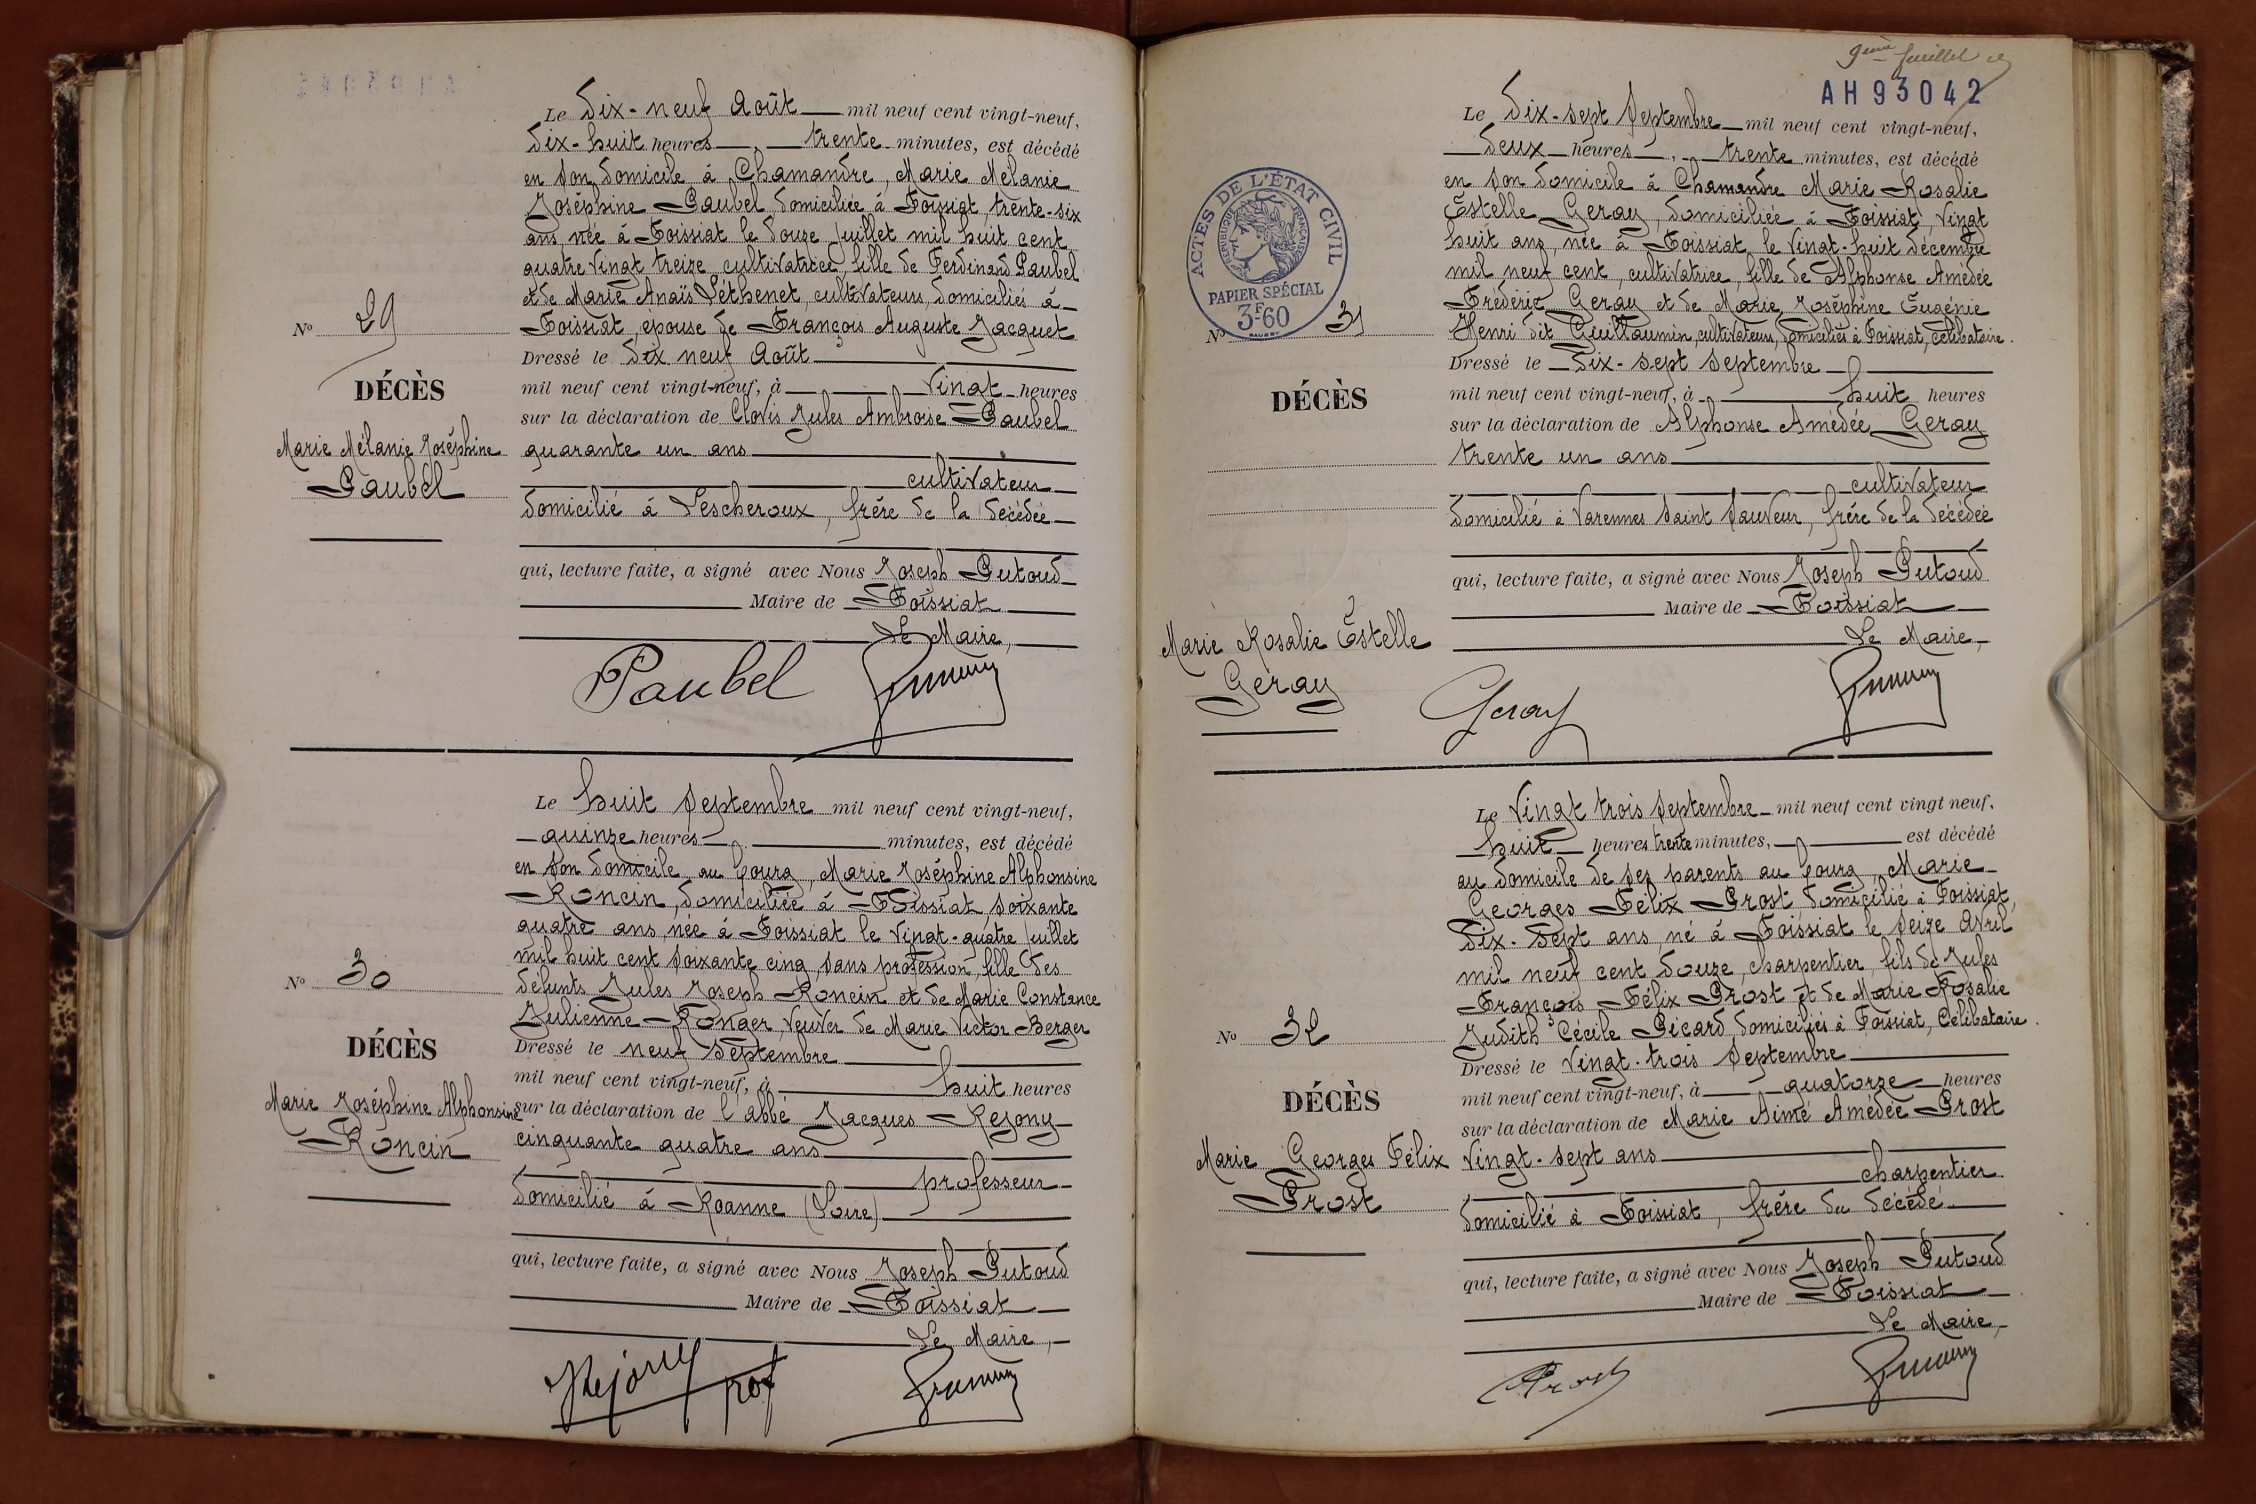 Le dix-neuf Août mil neuf cent vingt-neuf,
dix-huit heures, trente minutes, est décédé
en son domicile à Chamandre, Marie Mélanie
Joséphine Paubel, domiciliée à Foissiat, trente-six
ans, née à Foissiat le douze juillet mil huit cent
quatre vingt treize, cultivatrice, fille de Ferdinand Paubel
et de Marie Anaïs Péthenet, cultivateurs, domiciliés à
Foissiat, épouse de François Auguste Jacquet
Nº 29
Dressé le dix neuf Août
DÉCÈS
mil neuf cent vingt-neuf, à vingt heures
sur la déclaration de Clovis Jules Ambroise Paubel
Marie Mélanie Joséphine
Paubel
quarante un ans
cultivateur
domicilié à Lescheroux, frère de la décédée
qui, lecture faite, a signé avec Nous Joseph Putoud
Maire de Foissiat
Le Maire,
Paubel
Le huit Septembre mil neuf cent vingt-neuf,
quinze heures, minutes, est décédé
en son domicile, au bourg, Marie Joséphine Alphonsine
Roncin, domiciliée à Foissiat, soixante
quatre ans, née à Foissiat le vingt-quatre juillet
mil huit cent soixante cinq, sans profession, fille des
défunts Jules Joseph Roncin et de Marie Constance
Julienne Ronger, veuve de Marie Victor Berger
Nº 30
Dressé le neuf Septembre
DÉCÈS
mil neuf cent vingt-neuf, à huit heures
Marie Joséphine Alphonsine
Roncin
sur la déclaration de l'abbé Jacques Rejony
cinquante quatre ans
professeur
domicilié à Roanne (Loire)
qui, lecture faite, a signé avec Nous Joseph Putoud
Maire de Foissiat
Le Maire,
Rejony
prof
9ème feuillet
AH93042
Le Dix-sept Septembre mil neuf cent vingt-neuf,
deux heures, trente minutes, est décédé
en son domicile à Chamandre Marie Rosalie
Estelle Geray, domiciliée à Foissiat, vingt
huit ans, née à Foissiat le vingt-huit décembre
mil neuf cent, cultivatrice, fille de Alphonse Amédée
Frédéric Geray et de Marie Joséphine Eugénie
Henri dit Guillaumin, cultivateurs, domiciliés à Foissiat, célibataire.
ACTES DE L'ÉTAT CIVIL
RÉPUBLIQUE FRANÇAISE
PAPIER SPÉCIAL
3F60
Nº 31
Dressé le Dix-sept Septembre
DÉCÈS
mil neuf cent vingt-neuf, à huit heures
sur la déclaration de Alphonse Amédée Geray
trente un ans
cultivateur
domicilié à Varennes Saint Sauveur, frère de la décédée
qui, lecture faite, a signé avec Nous Joseph Putoud
Maire de Foissiat
Le Maire,
Marie Rosalie Estelle
Geray
Geray
Le Vingt trois Septembre mil neuf cent vingt neuf,
huit heures trente minutes, est décédé
au domicile de ses parents au bourg, Marie
Georges Félix Prost domicilié à Foissiat,
dix-sept ans, né à Foissiat le seize Avril
mil neuf cent douze, charpentier, fils de Jules
François Félix Prost et de Marie Rosalie
Judith Cécile Picard, domiciliés à Foissiat, Célibataire.
Nº 32
Dressé le vingt-trois Septembre
DÉCÈS
mil neuf cent vingt-neuf, à quatorze heures
sur la déclaration de Marie Aimé Amédée Prost
Marie Georges Félix
Prost
Vingt-sept ans
charpentier
domicilié à Foissiat, frère du décédé
qui, lecture faite, a signé avec Nous Joseph Putoud
Maire de Foissiat
Le Maire,
Prost